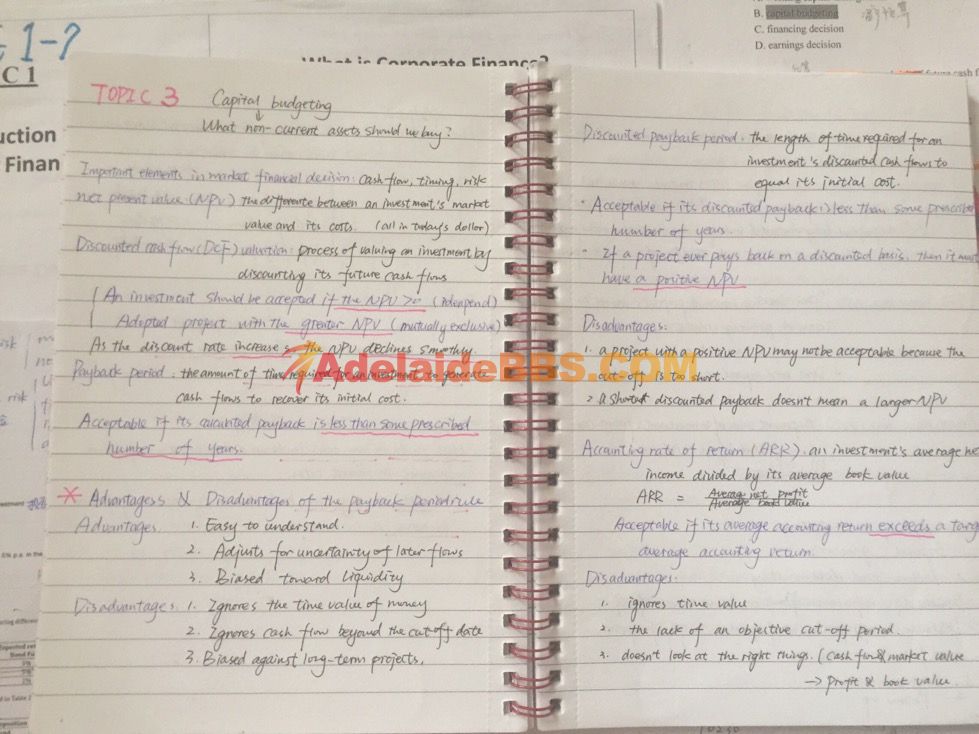 1-7
C 1
uction
Finan
What is Corporate Finance?
B. capital budgeting
C. financing decision
D. earnings decision
TOPIC 3
Capital budgeting
What non-current assets should we buy?
Important elements in market financial decision: cash flow, timing, risk
net present value (NPV) the difference between an investment's market
value and its costs. (all in today's dollor)
Discounted cash flow (DCF) valuation: process of valuing an investment by
discounting its future cash flows
An investment should be accepted if the NPV >0 (idenpend)
Adopted project with the greater NPV (mutually exclusive)
As the discount rate increases, the NPV declines smoothly
Payback period: the amount of time required for an investment to generate
cash flows to recover its initial cost.
Acceptable if its calculated payback is less than some prescribed
number of years.
* Advantagess & Disadvantages of the payback period rule
Advantages. 1. Easy to understand.
2. Adjusts for uncertainty of later flows
3. Biased toward liquidity
Disadvantages: 1. Ignores the time value of money
2. Ignores cash flow beyond the cut-off date
3. Biased against long-term projects.
Discounted payback period: the length of time required for an
investment's discounted cash flows to
equal its initial cost.
· Acceptable if its discounted payback is less than some prescribe
number of years.
· If a project ever pays back on a discounted basis, then it must
have a positive NPV
Disadvantages:
1. a project with a positive NPV may not be acceptable because the
cut-off is too short.
2. a short discounted payback doesn't mean a larger NPV
Accounting rate of return (ARR). an investment's average ne
income divided by its average book value
ARR = Average net profit
Average book value
Acceptable if its average accounting return exceeds a targ
average accounting return.
Disadvantages:
1. ignores time value
2. the lack of an objective cut-off period.
3. doesn't look at the right things. (cash flow & market value
→ profit & book value.
AdelaideBBS.COM